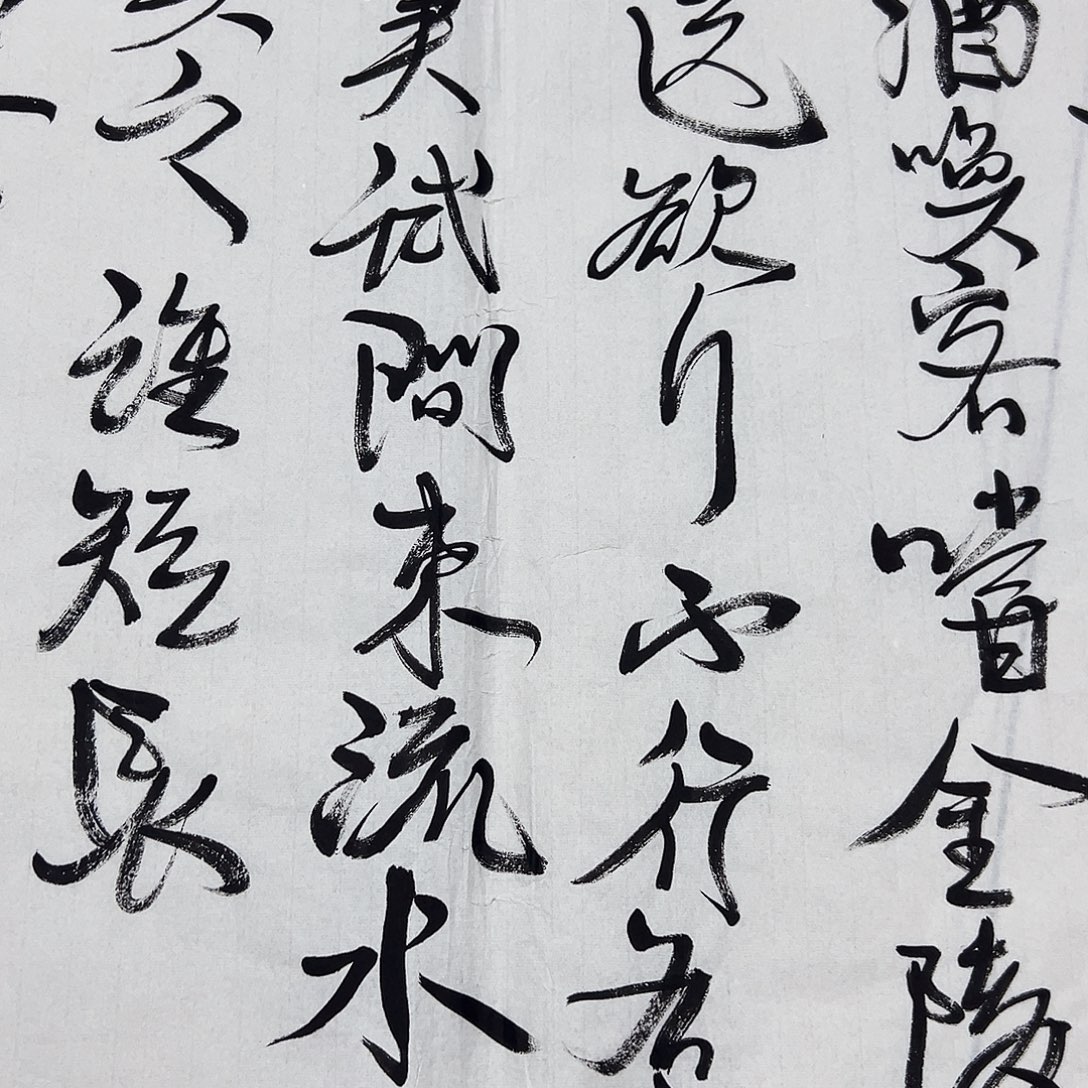 酒喚客嚐金陵
送欲行不行各
試問東流水
之誰短長